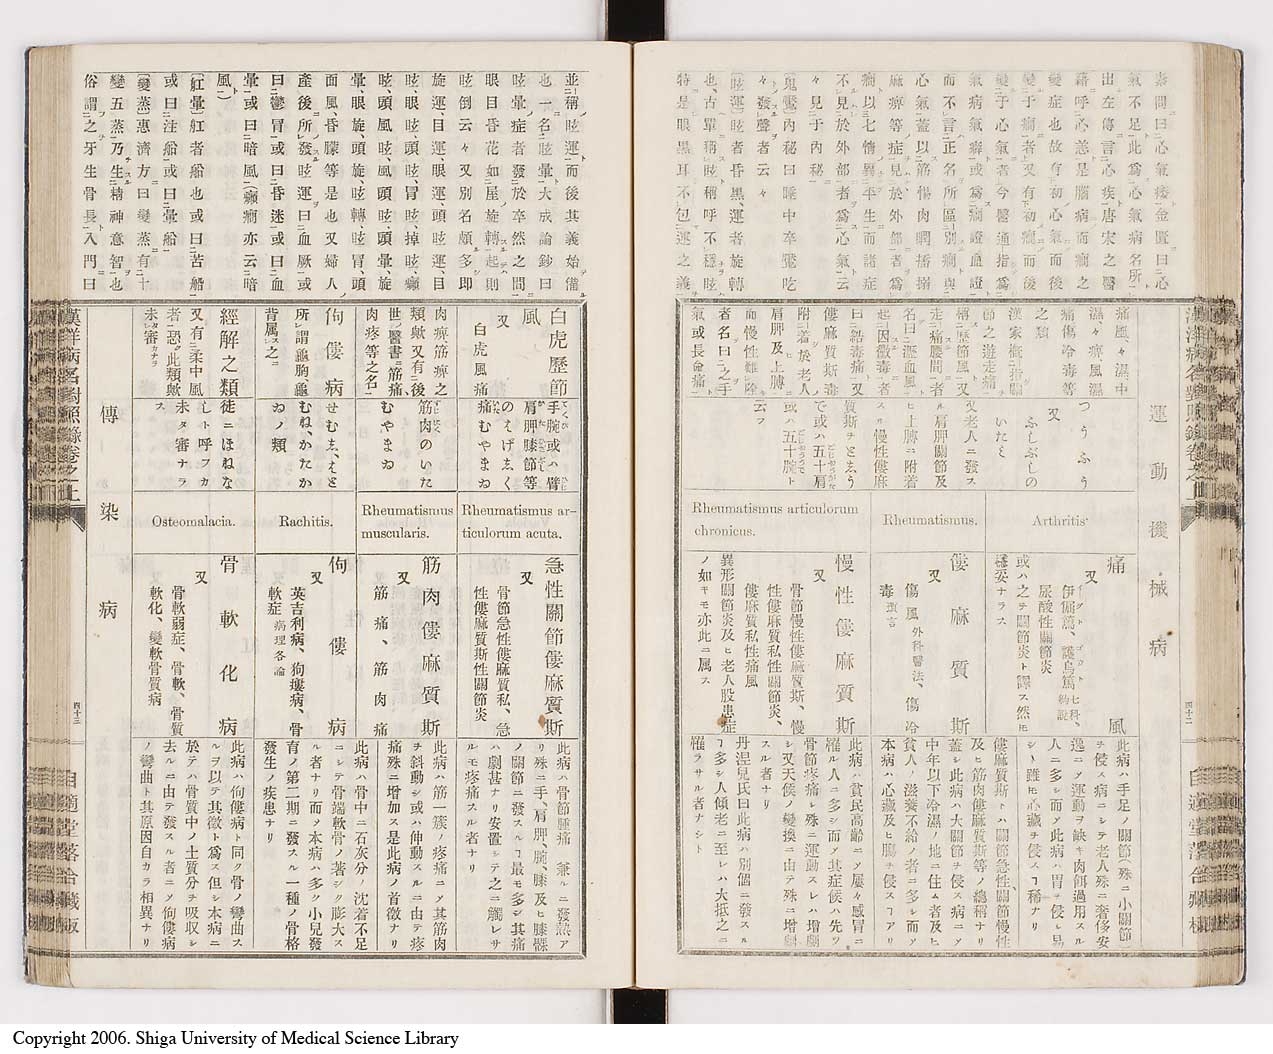 素問曰心氣痿金匱曰心
氣不足此爲心氣病名所
出左傳言心疾唐宋之醫
藉呼心恙是腦病而癇之
變症也故有初心氣而後
變于癇者又有下初癇而後
變于心氣者今醫通指爲
氣病氣癖或爲癇證血證
而不言正名所區別癇與
心氣蓋以筋惕肉瞤搐搦
麻痺等症見於外部者爲
癇以七情異平生而諸症
不見於外部者爲心氣云
々見于内秘
〔鬼魘〕内秘曰睡中卒魘吃
々發聲者云々
〔眩運〕眩者昏黑、運者旋轉
也、古單稱眩稱呼不穩眩
特是眼黑耳不包運之義
運動機械病
痛風、々濕中
濕、々痺、風濕
痛傷冷毒等
之類
つうふう
又
ふしぶしの
いたミ
Arthritis
痛風
又
尿酸性關節炎
或ハ之ヲ關節炎ト譯ス然ㇾ𪜈
穩妥ナラス
此病ハ手足ノ關節(殊ニ小關節)
ヲ侵ス病ニシテ老人殊ニ奢侈安
逸ニ〆運動ヲ缺キ肉餌過用スル
人ニ多シ而〆此病ハ胃ヲ侵シ易
シト雖𪜈心藏ヲ侵スヿ稀ナリ
漢家
節之遊走痛
稱歷節風又
走痛腰間者
名曰瀝血風
起因黴毒者
曰結毒痛又
僂麻質斯毒
附着於老人
肩胛及上膊
而慢性難治
者名曰之手
氣或長命痛
又老人ニ發ス
ル肩胛關節及
ヒ上膊ニ附着
スル慢性僂麻
質斯ヲとしう
で或ハ五十肩
或ハ五十腕ト
云フ
Rheumatismus.
僂麻質斯
又
傷風 外科醫法、傷冷
毒 蛮言
僂麻質斯トハ關節急性、關節慢性
及ヒ筋肉僂麻質斯等ノ總稱ナリ
蓋シ此病ハ大關節ヲ侵ス病ニ〆
中年以下冷濕ノ地ニ住ム者及ヒ
貧人ノ滋養不給ノ者ニ多シ而〆
本病ハ心藏及ヒ腸ヲ侵スヿアリ
Rheumatismus articulorum
chronicus.
慢性僂麻質斯
又
骨節慢性僂麻質斯、慢
性僂麻質私性關節炎、
僂麻質私性痛風
異形關節炎及ヒ老人股患症
ノ如キモ亦此ニ属ス
此病ハ貧民高齡ニ〆屢々感冒ニ
罹ル人ニ多シ而〆其症候ハ先ツ
骨節疼痛シ殊ニ運動スレハ增劇
シ又天候ノ變換ニ由テ殊ニ增劇
スル者ナリ
丹涅兒氏曰此病ハ別個ニ發スル
ヿ多シ人傾老ニ至レハ大抵之ニ
罹ラサル者ナシト
四十二
並稱眩運而後其義始備
也一名眩暈大成論鈔曰
眩暈症者發於卒然之間
眼目昏花如屋旋轉起則
眩倒云々又別名頗多即
旋運、目運眼運、頭眩運、目
眩、眼眩、頭眩、冒眩、掉眩、癲
眩、頭風眩、風頭眩、頭暈、旋
暈、眼旋、頭旋眩轉、眩冒、頭
面風昏朦等是也又婦人
產後所發眩運曰血厥或
曰鬱冒或曰昏迷或曰血
暈或曰暗風(癲癇亦云暗
風)
〔舡暈〕舡者船也或曰苦船
或曰注船或曰暈船
〔變蒸〕惠濟方曰變蒸有二十
變五蒸乃生精神意智也
俗謂之牙生骨長入門曰
白虎歷節
風
又
白虎風痛
手腕或ハ臂
肩胛膝節等
のはげしく
痛むやまゐ
Rheumatismus ar-
ticulorum acuta.
急性關節僂麻質斯
又
骨節急性僂麻質私、急
性僂麻質斯性關節炎
此病ハ骨節腫痛 兼ルニ發熱ア
リ殊ニ手、肩胛、腕、膝及ヒ膝髁
ノ關節ニ發スルヿ最モ多シ其痛
ハ劇甚ナリ安置シテ之ニ觸レサ
ルモ疼痛スル者ナリ
肉痺筋痺之
類歟又有後
世醫書筋痛、
肉疼等之名
筋肉のいた
むやまゐ
Rheumatismus
muscularis.
筋肉僂麻質斯
又
筋痛、筋肉痛
此病ハ筋一簇ノ疼痛ニ〆其筋肉
ヲ斜動シ或ハ伸動スルニ由テ疼
痛殊ニ增加ス是此病ノ首徵ナリ
佝僂病
所謂龜胸龜
背属之
せむし、はと
むね、かたか
ゐノ類
Rachitis.
佝僂病
又
英吉利病、狗瘻病、骨
軟症 病理各論
此病ハ骨中ニ石灰分ノ沈着不足
ニシテ骨端軟骨ノ著シク膨大ス
ル者ナリ而〆本病ハ多ク小兒發
育ノ第二期ニ發スル一種ノ骨格
發生ノ疾患ナリ
經解之類
又有柔中風
者恐此類歟
未審
徒ニほねな
しト呼フカ
未タ審ナラ
ス
Osteomalacia.
骨軟化病
又
骨軟弱症、骨軟、骨質
軟化、變軟骨質病
此病ハ佝僂病ト同ク骨ノ彎曲ス
ルヲ以テ其徵ト爲ス但シ本病ニ
於テハ骨質中ノ土質分ヲ吸収シ
去ルニ由テ發スル者ニ〆佝僂病
ノ彎曲ト其原因自カラ相異ナリ
傳染病
漢洋病名對照錄卷之上
四十三
自適堂落合藏版
Copyright 2006. Shiga University of Medical Science Library